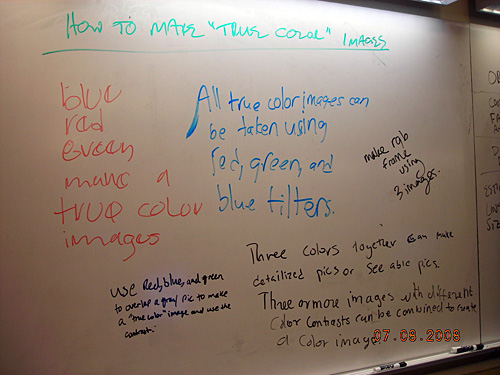 HOW TO MAKE "TRUE COLOR" IMAGES
blue
red
green
make a
true color
images
All true color images can
be taken using
red, green, and
blue filters.
make rgb
frame
using
3 images.
Three colors together can make
detailized pics or see able pics.
Three or more images with different
color contrasts can be combined to create
a color image.
use Red, blue, and green
to overlap a gray pic to make
a "true color" image and use the
contrast.
07.09.2008